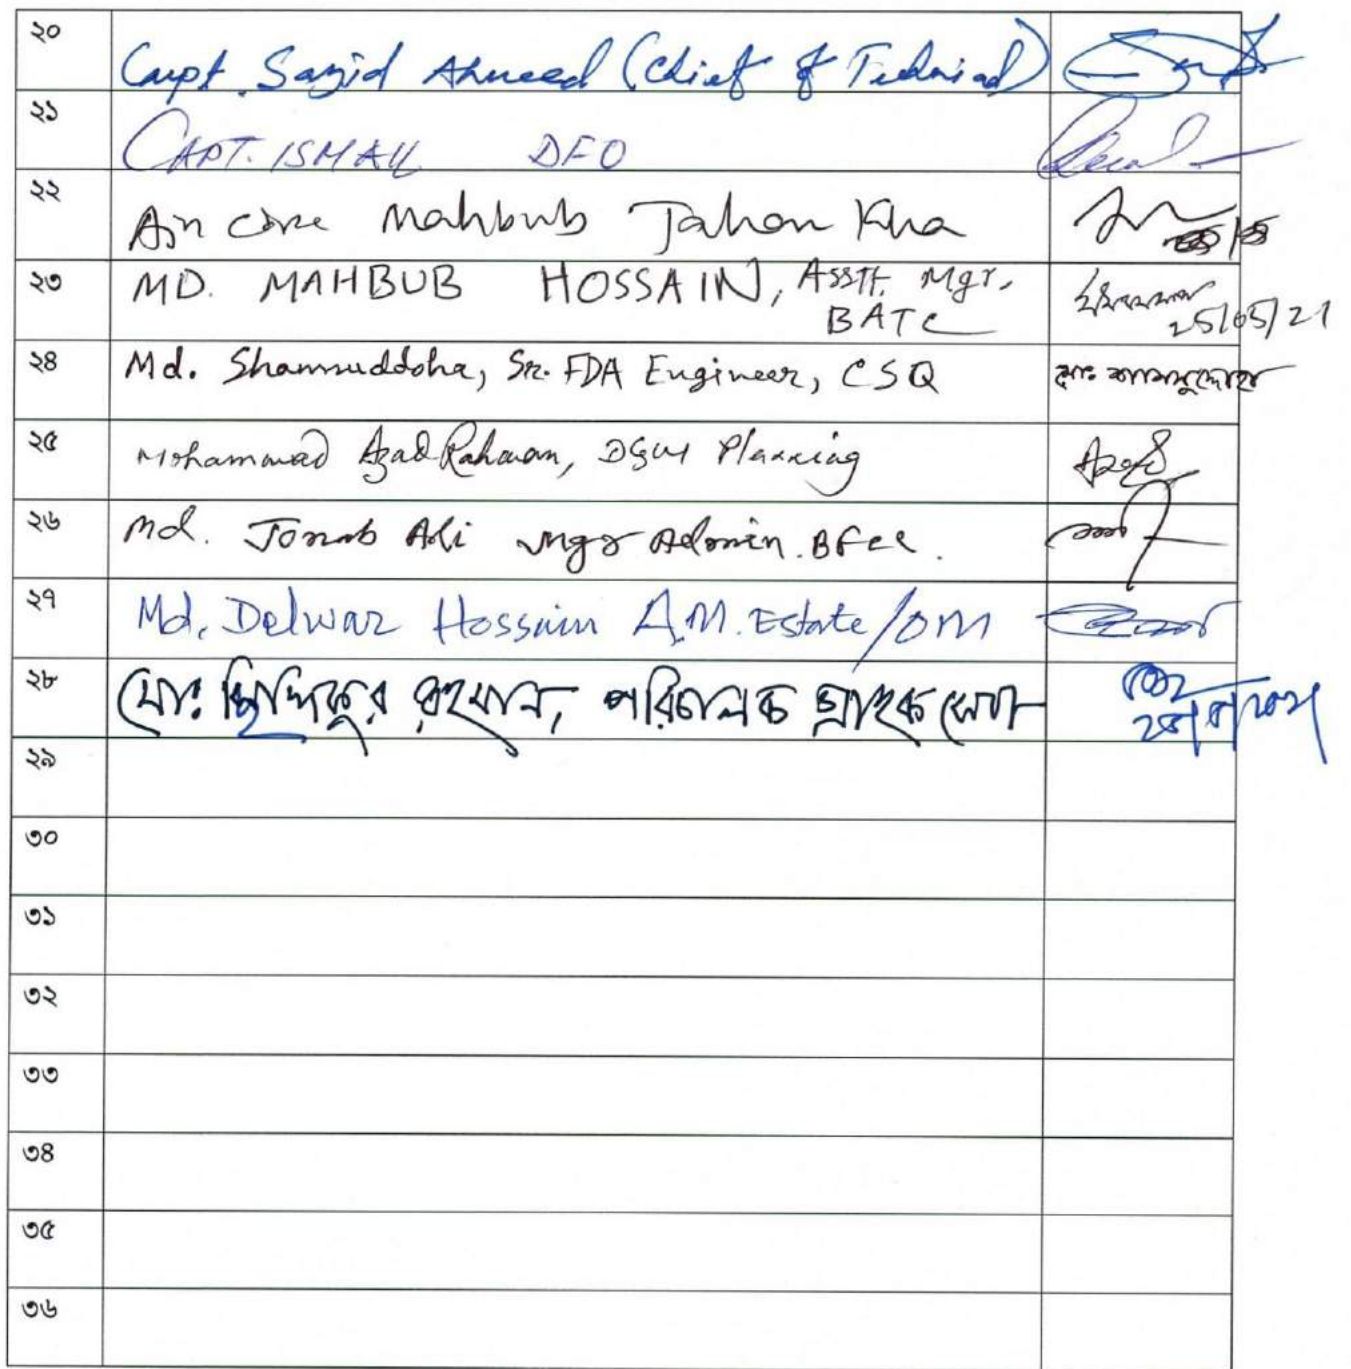 ২০ Capt. Sazid Ahmeed (Chief of Technical)
২১ CAPT. ISMAIL DFO
২২ Air Cdre Mahbub Jahan Kha
২৩ MD. MAHBUB HOSSAIN, Asstt. Mgr, 
BATC 25/05/21
২৪ Md. Shamsuddoha, Sr. FDA Engineer, CSQ মোঃ শামসুদ্দোহা
২৫ Mohammad Azad Rahman, DGM Planning Azad
২৬ Md. Jonab Ali Mgr Admin. BFCC.
২৭ Md. Delwar Hossain A.M. Estate/OM
২৮ মোঃ ছিদ্দিকুর রহমান, পরিচালক গ্রাহক সেবা
২৯
৩০
৩১
৩২
৩৩
৩৪
৩৫
৩৬